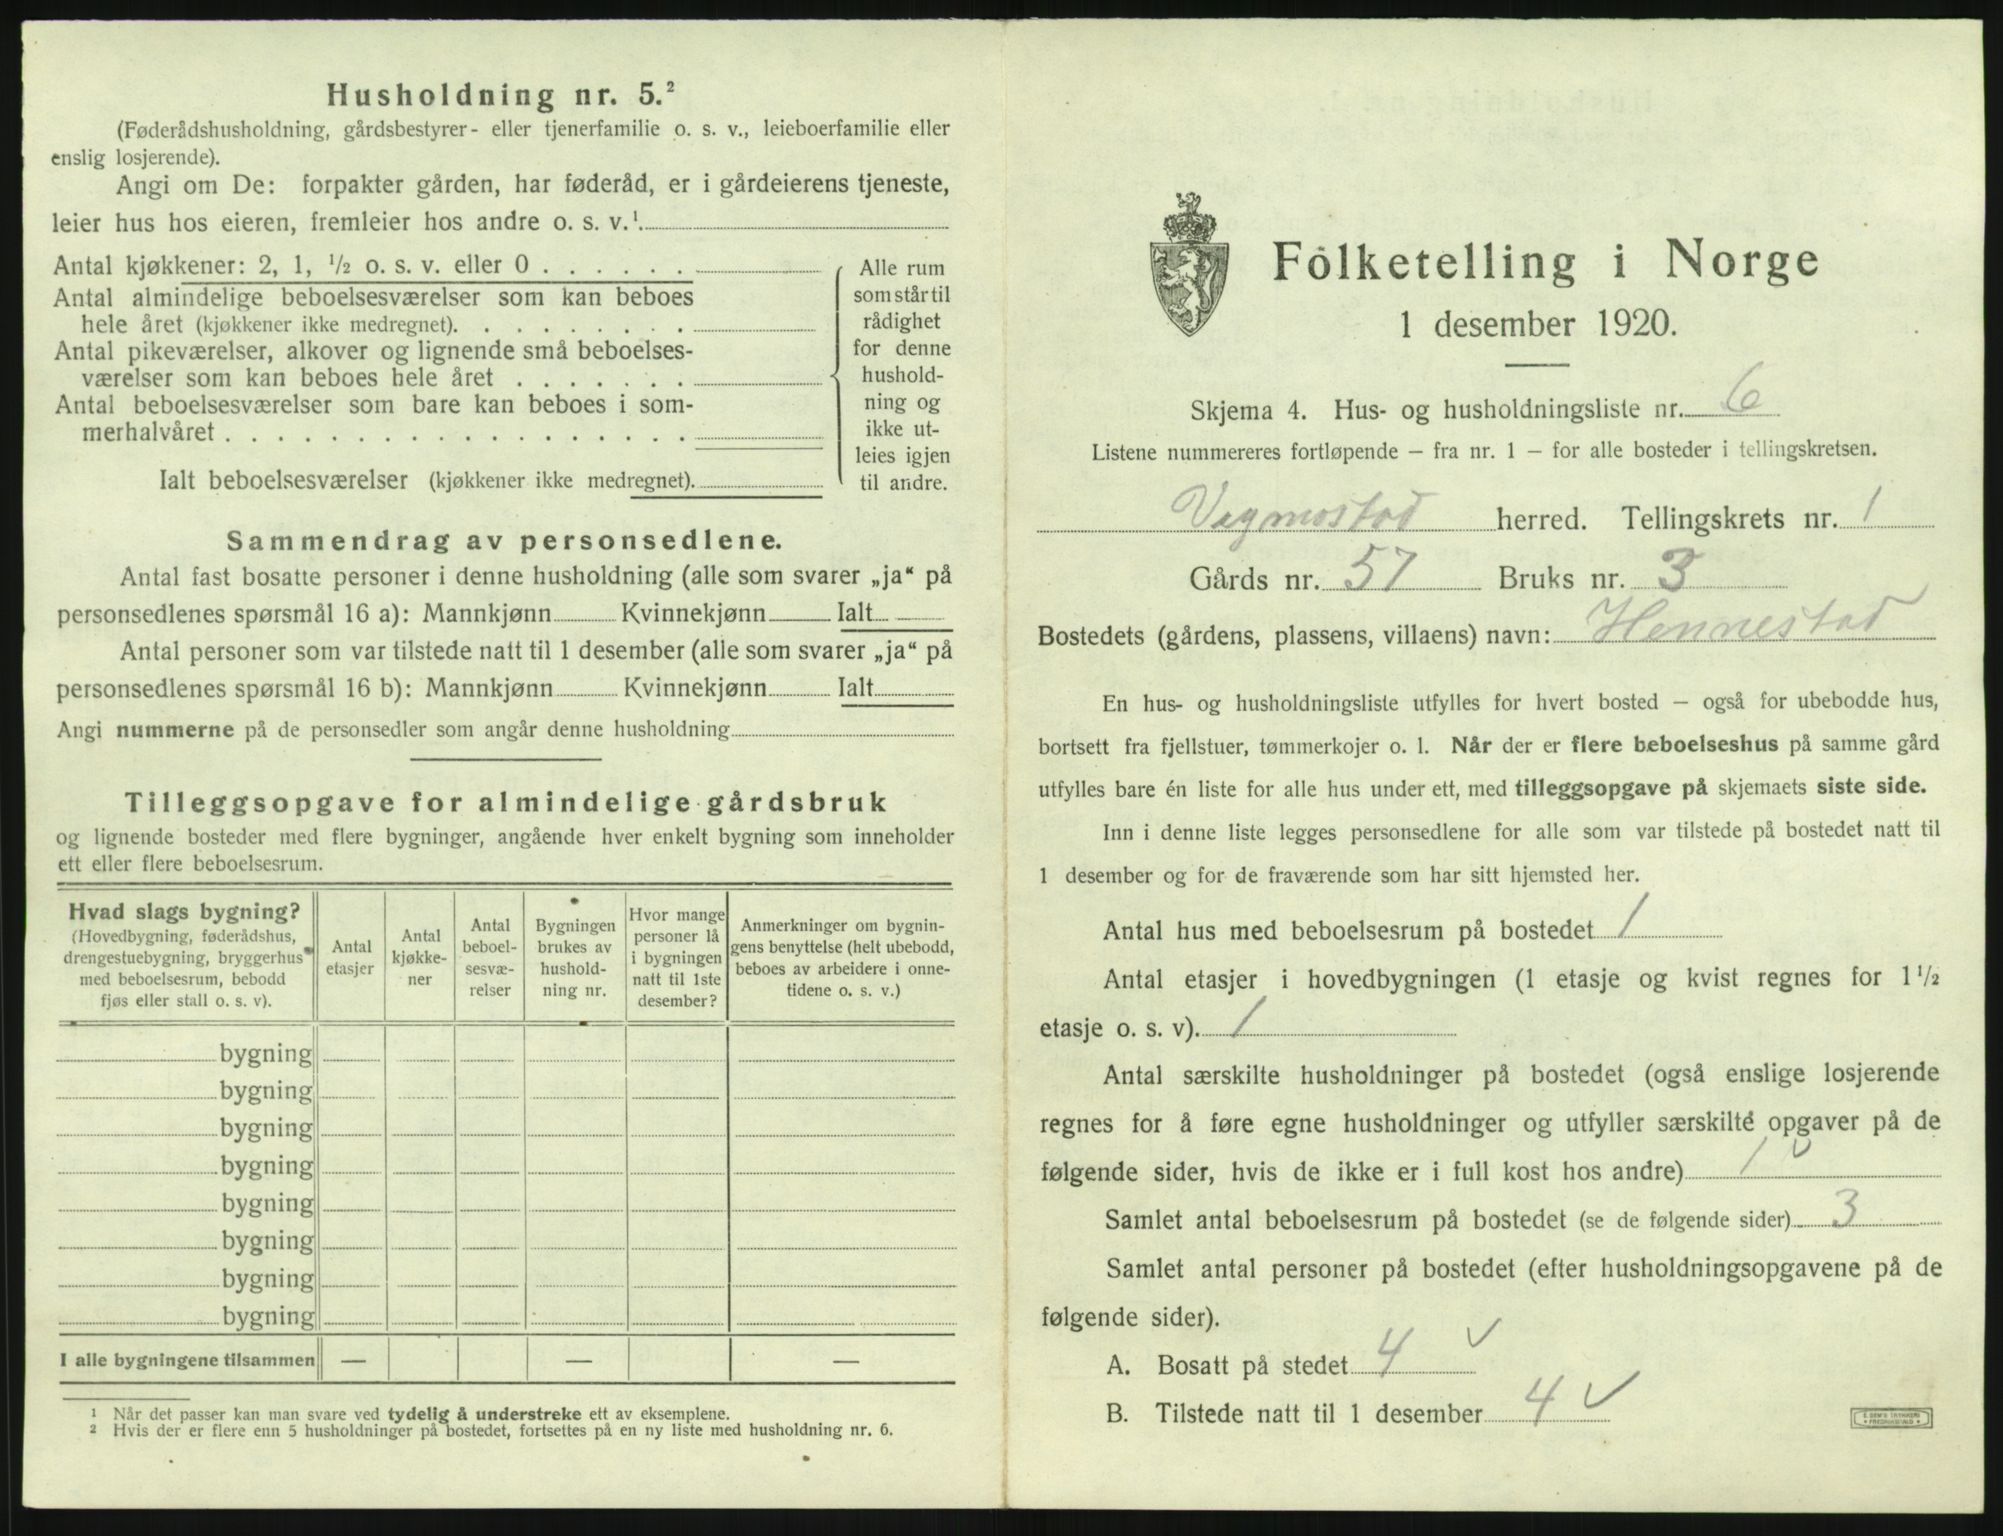 Husholdning nr. 5.²
(Føderådshusholdning, gårdsbestyrer- eller tjenerfamilie o. s. v., leieboerfamilie eller
enslig losjerende).
Angi om De: forpakter gården, har føderåd, er i gårdeierens tjeneste,
leier hus hos eieren, fremleier hos andre o. s. v.¹
Antal kjøkkener: 2, 1, ½ o. s. v. eller 0 . . . . . .
Antal almindelige beboelsesværelser som kan beboes
hele året (kjøkkener ikke medregnet). . . . . . . . .
Antal pikeværelser, alkover og lignende små beboelses-
værelser som kan beboes hele året . . . . . . .
Antal beboelsesværelser som bare kan beboes i som-
merhalvåret . . . . . . . . . . . . . . . . . .
Ialt beboelsesværelser (kjøkkener ikke medregnet).
Alle rum
som står til
rådighet
for denne
hushold-
ning og
ikke ut-
leies igjen
til andre.
Sammendrag av personsedlene.
Antal fast bosatte personer i denne husholdning (alle som svarer „ja“ på
personsedlenes spørsmål 16 a): Mannkjønn Kvinnekjønn Ialt
Antal personer som var tilstede natt til 1 desember (alle som svarer „ja“ på
personsedlenes spørsmål 16 b): Mannkjønn Kvinnekjønn Ialt
Angi nummerne på de personsedler som angår denne husholdning
Tilleggsopgave for almindelige gårdsbruk
og lignende bosteder med flere bygninger, angående hver enkelt bygning som inneholder
ett eller flere beboelsesrum.
Hvad slags bygning?
(Hovedbygning, føderådshus,
drengestuebygning, bryggerhus
med beboelsesrum, bebodd
fjøs eller stall o. s. v).
Antal
etasjer
Antal
kjøkke-
ner
Antal
beboel-
sesvæ-
relser
Bygningen
brukes av
hushold-
ning nr.
Hvor mange
personer lå
i bygningen
natt til 1ste
desember?
Anmerkninger om bygnin-
gens benyttelse (helt ubebodd,
beboes av arbeidere i onne-
tidene o. s. v.)
bygning
bygning
bygning
bygning
bygning
bygning
bygning
bygning
I alle bygningene tilsammen — — —
¹ Når det passer kan man svare ved tydelig å understreke ett av eksemplene.
² Hvis der er flere enn 5 husholdninger på bostedet, fortsettes på en ny liste med husholdning nr. 6.
Folketelling i Norge
1 desember 1920.
Skjema 4. Hus- og husholdningsliste nr. 6
Listene nummereres fortløpende — fra nr. 1 — for alle bosteder i tellingskretsen.
Vigmostad herred. Tellingskrets nr. 1
Gårds nr. 57 Bruks nr. 3
Bostedets (gårdens, plassens, villaens) navn: Hennestad
En hus- og husholdningsliste utfylles for hvert bosted — også for ubebodde hus,
bortsett fra fjellstuer, tømmerkojer o. l. Når der er flere beboelseshus på samme gård
utfylles bare én liste for alle hus under ett, med tilleggsopgave på skjemaets siste side.
Inn i denne liste legges personsedlene for alle som var tilstede på bostedet natt til
1 desember og for de fraværende som har sitt hjemsted her.
Antal hus med beboelsesrum på bostedet 1
Antal etasjer i hovedbygningen (1 etasje og kvist regnes for 1½
etasje o. s. v). 1
Antal særskilte husholdninger på bostedet (også enslige losjerende
regnes for å føre egne husholdninger og utfyller særskilte opgaver på de
følgende sider, hvis de ikke er i full kost hos andre) 1 ✓
Samlet antal beboelsesrum på bostedet (se de følgende sider) 3
Samlet antal personer på bostedet (efter husholdningsopgavene på de
følgende sider).
A. Bosatt på stedet 4 ✓
B. Tilstede natt til 1 desember 4 ✓